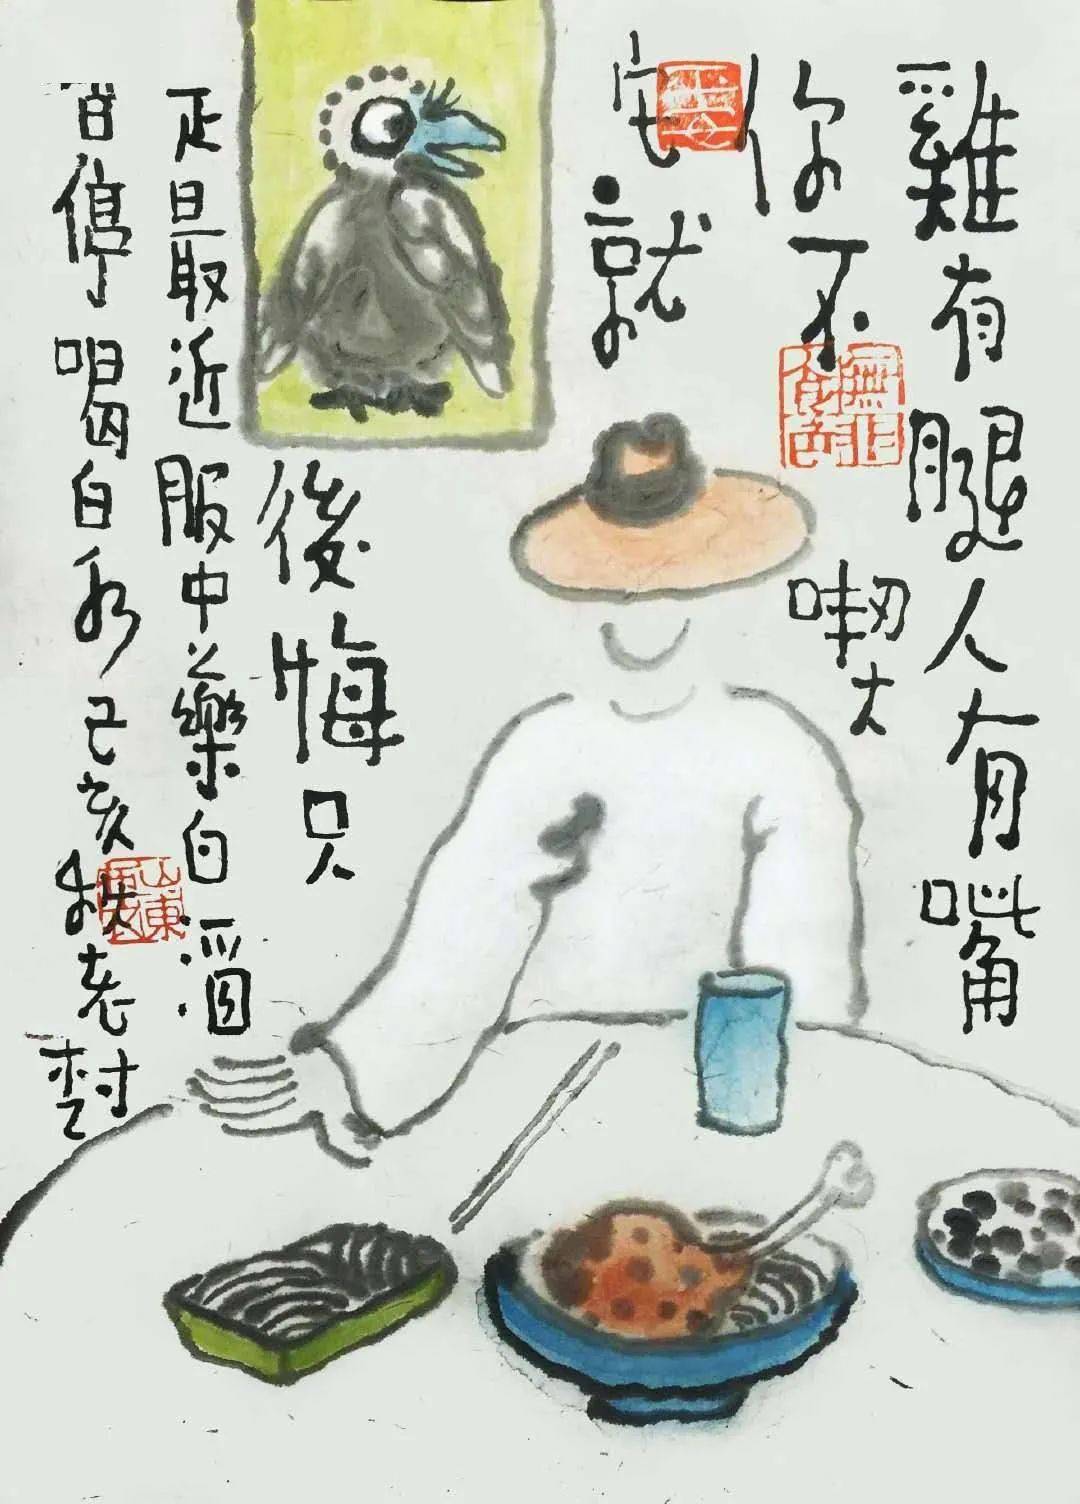 雞有腿人有嘴
你不喫
它就
後悔只
是最近服中藥白酒
停喝白水己亥秋老樹
無非食色